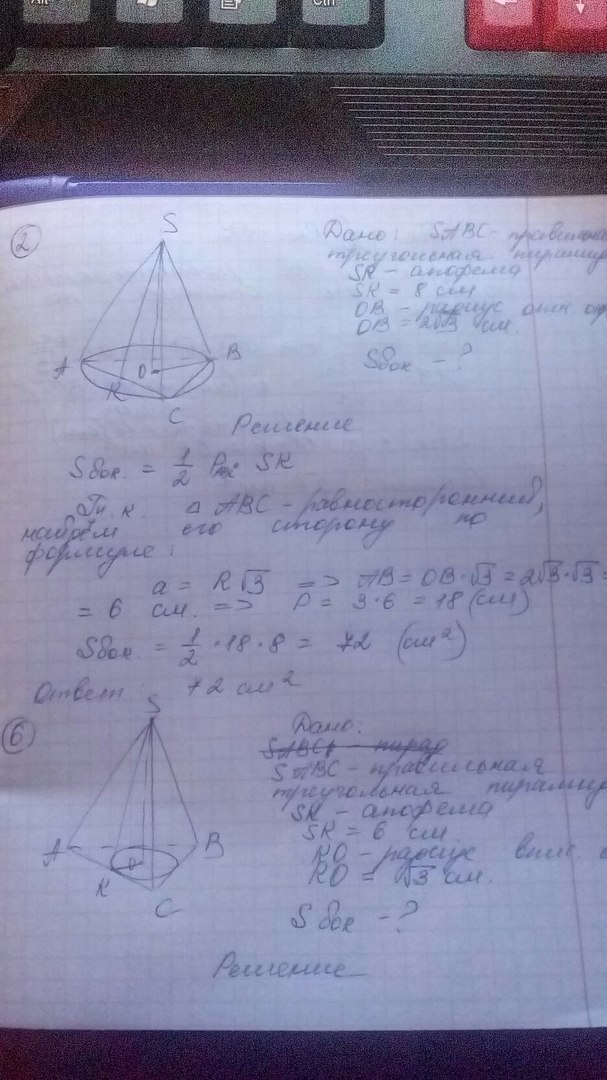 Alt
Ctrl
2
S
A
B
O
K
C
Дано: SABC - правильна
треугольная пирами
SK - апофема
SK = 8 см
OB - радиус опис. о
OB = 2√3 см.
Sбок - ?
Решение
Sбок. = 1/2 P_ABC · SK
Т. к. △ ABC - равносторонний,
найдём его сторону по
формуле:
a = R√3 => AB = OB · √3 = 2√3 · √3 =
= 6 см. => P = 3 · 6 = 18 (см)
Sбок. = 1/2 · 18 · 8 = 72 (см²)
Ответ 72 см²
6
S
A
B
O
K
C
Дано:
SABC - правильная
треугольная пирами
SK - апофема
SK = 6 см
KO - радиус впис. о
KO = √3 см.
Sбок - ?
Решение